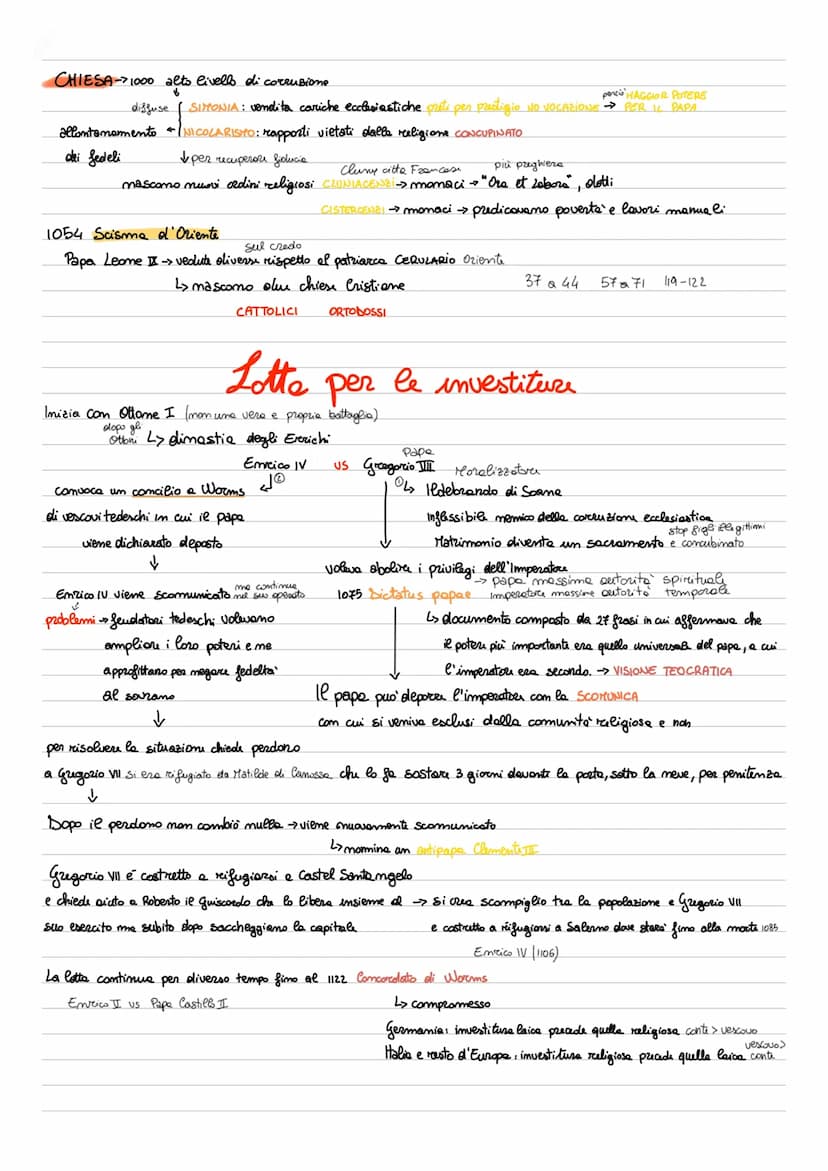 CHIESA → 1000 alto livello di corruzione
diffuse SIMONIA: vendita cariche ecclesiastiche preti per prestigio NO VOCAZIONE → perciò MAGGIOR POTERE PER IL PAPA
allontanamento ← NICOLARISMO: rapporti vietati dalla religione CONCUPINATO
dei fedeli ↓ per recuperare fiducia
Cluny città Francese più preghiera
nascono nuovi ordini religiosi CLUNIACENZI → monaci → "Ora et Labora", dotti
CISTERCENZI → monaci → predicavano povertà e lavori manuali
1054 Scisma d'Oriente
sul credo
Papa Leone IX → vedute diverse rispetto al patriarca CERULARIO Oriente
↳ nascono due chiese Cristiane 37 a 44 57 a 71 119-122
CATTOLICI ORTODOSSI
Lotta per le investiture
Inizia con Ottone I (non una vera e propria battaglia)
dopo gli Ottoni ↳ dinastia degli Enrichi
Enrico IV US Gregorio VII Papa Moralizzatore
convoca un concilio a Worms ② ① ↳ Ildebrando di Soana
di vescovi tedeschi in cui il papa Inflessibile nemico della corruzione ecclesiastica
stop figli illegittimi
viene dichiarato deposto Matrimonio diventa un sacramento e concubinato
↓ voleva abolire i privilegi dell'Imperatore
→ papa massima autorità spirituale
Enrico IV viene scomunicato ma continua nel suo operato 1075 Dictatus papae imperatore massima autorità temporale
problemi → feudatari tedeschi volevano ↳ documento composto da 27 frasi in cui affermava che
ampliare i loro poteri e ne il potere più importante era quello universale del papa, a cui
approfittano per negare fedeltà l'imperatore era secondo. → VISIONE TEOCRATICA
al sovrano Il papa può deporre l'imperatore con la SCOMUNICA
↓ con cui si veniva esclusi dalla comunità religiosa e non
per risolvere la situazione chiede perdono
a Gregorio VII si era rifugiato da Matilde di Canossa che lo fa sostare 3 giorni davanti la porta, sotto la neve, per penitenza
↓
Dopo il perdono non cambiò nulla → viene nuovamente scomunicato
↳ nomina un antipapa Clemente III
Gregorio VII è costretto a rifugiarsi a Castel Santangelo
e chiede aiuto a Roberto il Guiscardo che lo libera insieme al → si crea scompiglio tra la popolazione e Gregorio VII
suo esercito ma subito dopo saccheggiano la capitale e costretto a rifugiarsi a Salerno dove starà fino alla morte 1085
Enrico IV (1106)
La lotta continua per diverso tempo fino al 1122 Concordato di Worms
Enrico V vs Papa Castillo II ↳ compromesso
Germania: investitura laica precede quella religiosa conte > vescovo
Italia e resto d'Europa: investitura religiosa precede quella laica vescovo > conte